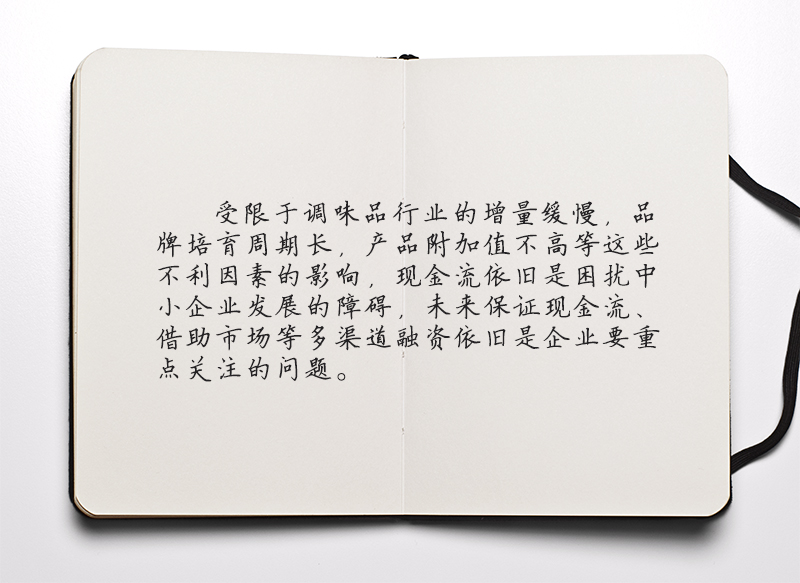 受限于调味品行业的增量缓慢，品
牌培育周期长，产品附加值不高等这些
不利因素的影响，现金流依旧是困扰中
小企业发展的障碍，未来保证现金流、
借助市场等多渠道融资依旧是企业要重
点关注的问题。